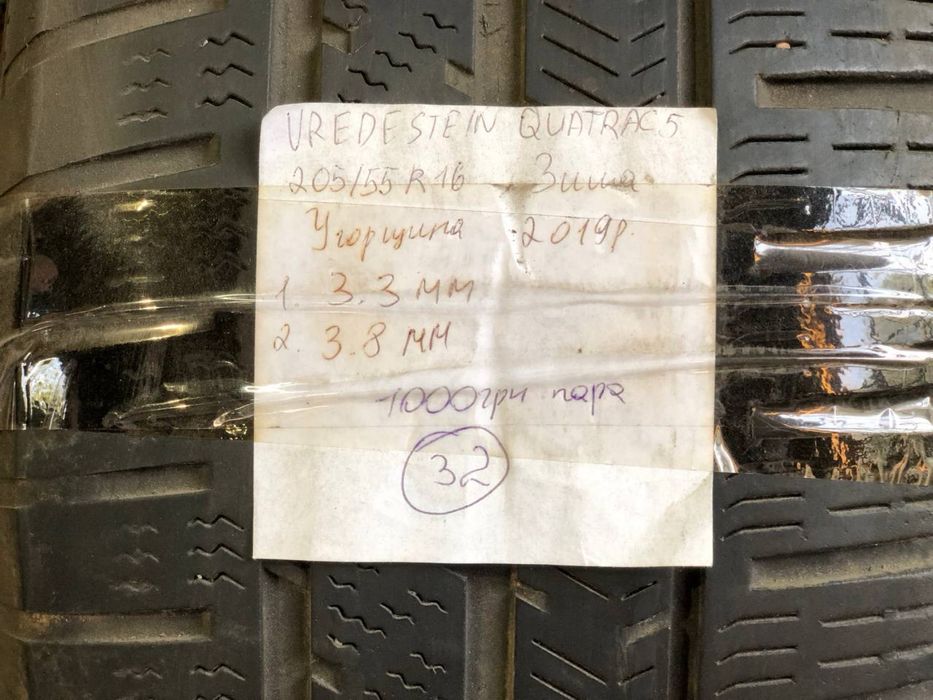 VREDESTEIN QUATRAC 5
205/55 R 16 Зима
Угорщина 2019р.
1. 3.3 мм
2. 3.8 мм
1000грн пара
32